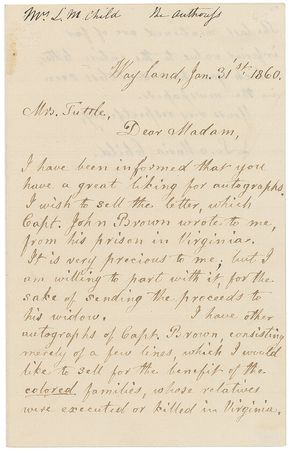 Mrs L M Child the Authoress
Wayland, Jan. 31st 1860.
Mrs. Tuttle,
Dear Madam,
I have been informed that you
have a great liking for autographs.
I wish to sell the letter, which
Capt. John Brown wrote to me,
from his prison in Virginia.
It is very precious to me; but I
am willing to part with it, for the
sake of sending the proceeds to
his widow. I have other
autographs of Capt. Brown, consisting
merely of a few lines, which I would
like to sell for the benefit of the
colored families, whose relatives
were executed or killed in Virginia.